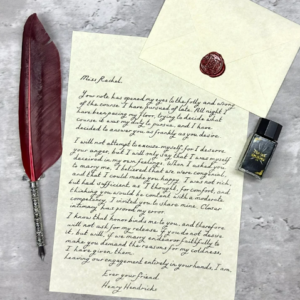 Miss Rachel.
Your note has opened my eyes to the folly and wrong
of the course I have pursued of late. All night I
have been pacing my floor, trying to decide what
course it was my duty to pursue, and I have
decided to answer you as frankly as you desire.
I will not attempt to excuse myself, for I deserve
your anger, but I will only say that I was myself
deceived in my own feelings. When I asked you
to marry me, I believed that we were congenial,
and that I could make you happy. I was not rich,
but had sufficient as I thought, for comfort, and
thinking you would be content with a moderate
competency, I invited you to share mine. Closer
intimacy has proved my error.
I know that honor binds me to you, and therefore
will not ask for my release. If you do not
it but will, if we marry endeavor faithfully to
make you demand the reasons for my coldness,
I have given them.
leaving our engagement entirely in your hands, I am,
Ever your friend
Henry Hendricks